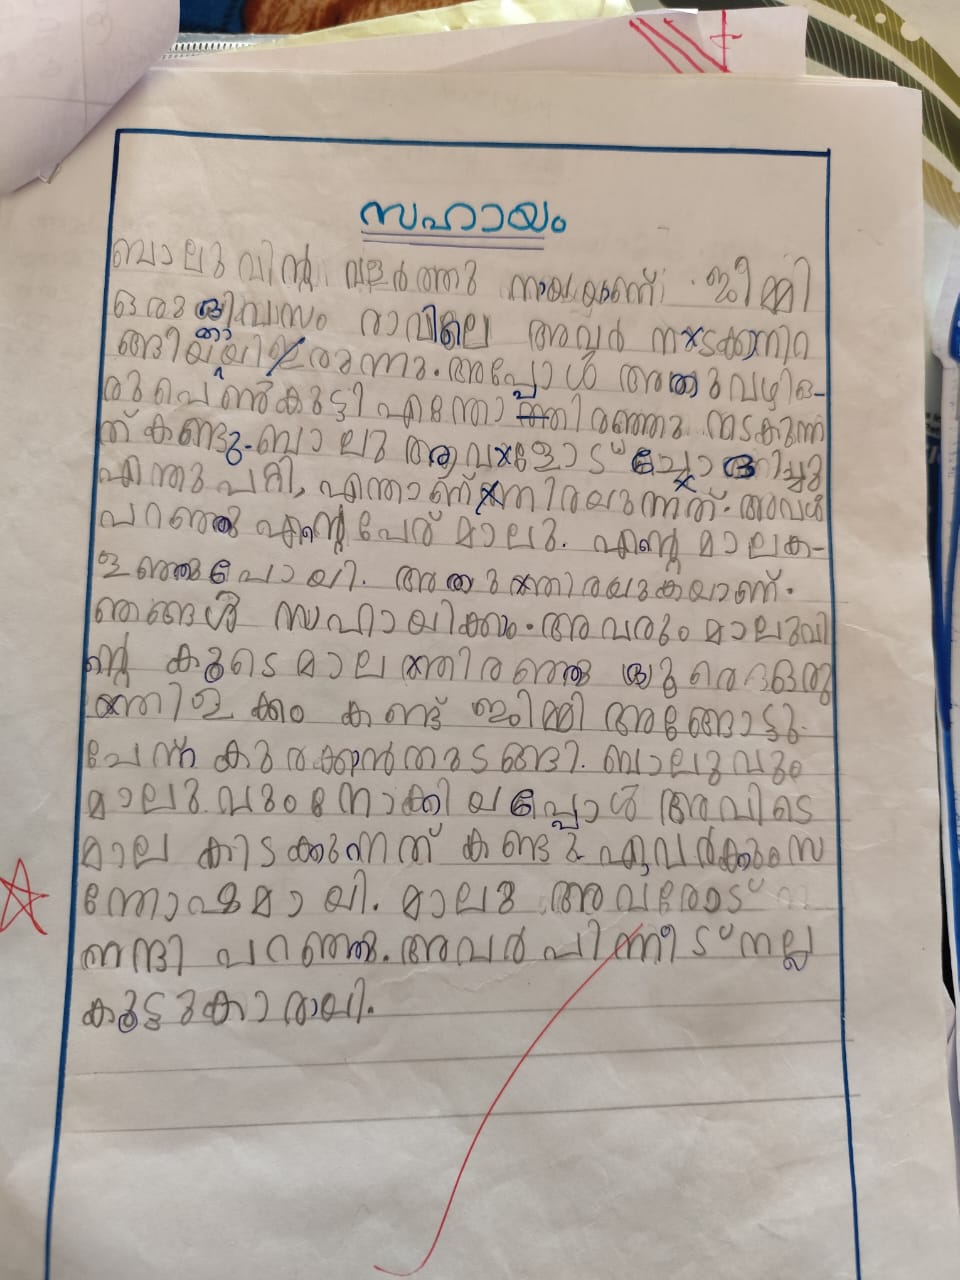 സഹായം
ബാലുവിന്റെ വളർത്തു നായയാണ് ജിമ്മി
ഒരു ദിവസം രാവിലെ അവർ നടക്കാനിറ
ങ്ങിയതായിരുന്നു. അപ്പോൾ അതുവഴി ഒ-
രു പെൺകുട്ടി എന്തോ തിരഞ്ഞു നടകുന്ന
ത് കണ്ടു. ബാലു അവളോട് ചോദിച്ചു
എന്തു പറ്റി, എന്താണ് തിരയുന്നത്. അവൾ
പറഞ്ഞു എന്റെ പേര് മാലു. എന്റെ മാല ക-
ളഞ്ഞുപോയി. അതു തിരയുകയാണ്.
ഞങ്ങൾ സഹായിക്കാം. അവരും മാലുവി
ന്റെ കൂടെ മാല തിരഞ്ഞു ദൂരെ ഒരു
തിളക്കം കണ്ട് ജിമ്മി അങ്ങോട്ടു
ചേന്ന് കുരക്കാൻ തുടങ്ങി. ബാലുവും
മാലുവും നോക്കിയപ്പോൾ അവിടെ
മാല കിടക്കുന്നത് കണ്ടു. ഏവർക്കും സ
ന്തോഷമായി. മാലു അവരോട്
നന്ദി പറഞ്ഞു. അവർ പിന്നീട് നല്ല
കൂട്ടുകാരായി.